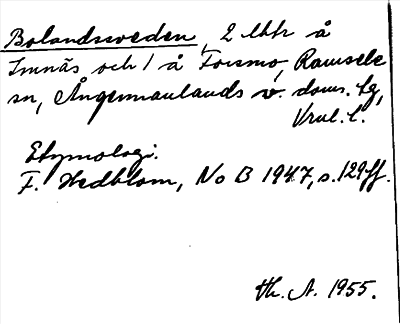 Bolandssveden, 2 lhtr å
Imnäs och 1 å Forsmo, Ramsele
sn, Ångermanlands v. doms. tg,
Vnl. l.
Etymologi.
F. Hedblom, No B 1947, s. 129 ff.
Th. A. 1955.